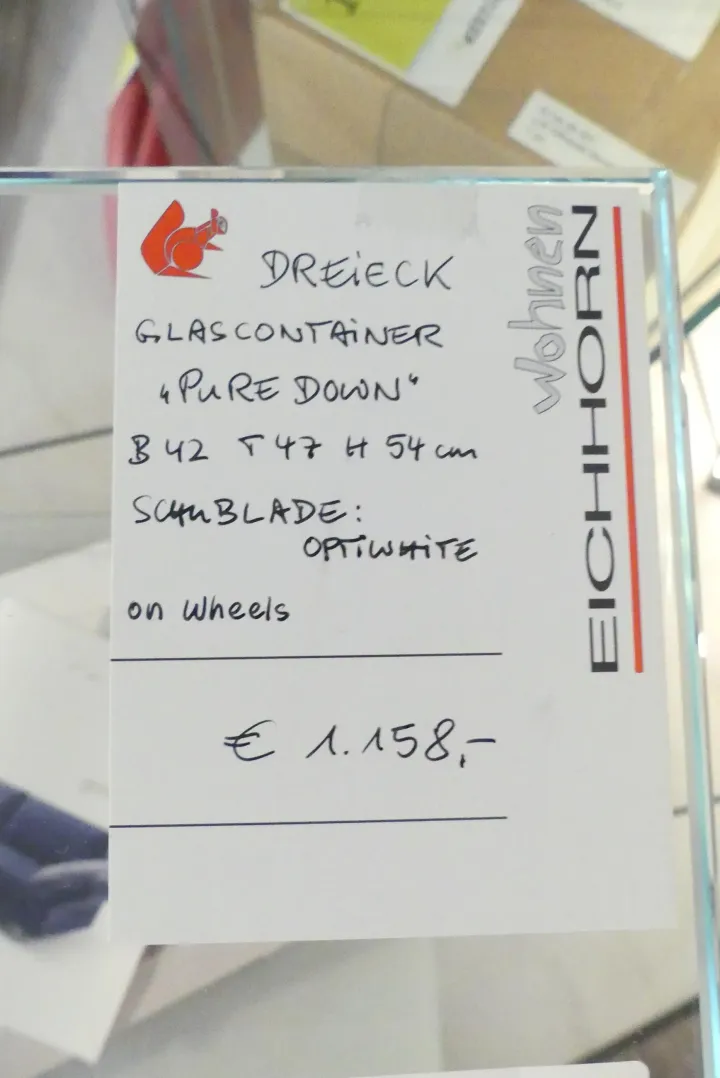 DREiECK
GLASCONTAiNER
„PURE DOWN“
B 42 T 47 H 54 cm
SCHUBLADE:
OPTiWHiTE
on Wheels
€ 1.158,-
Wohnen
EICHHORN